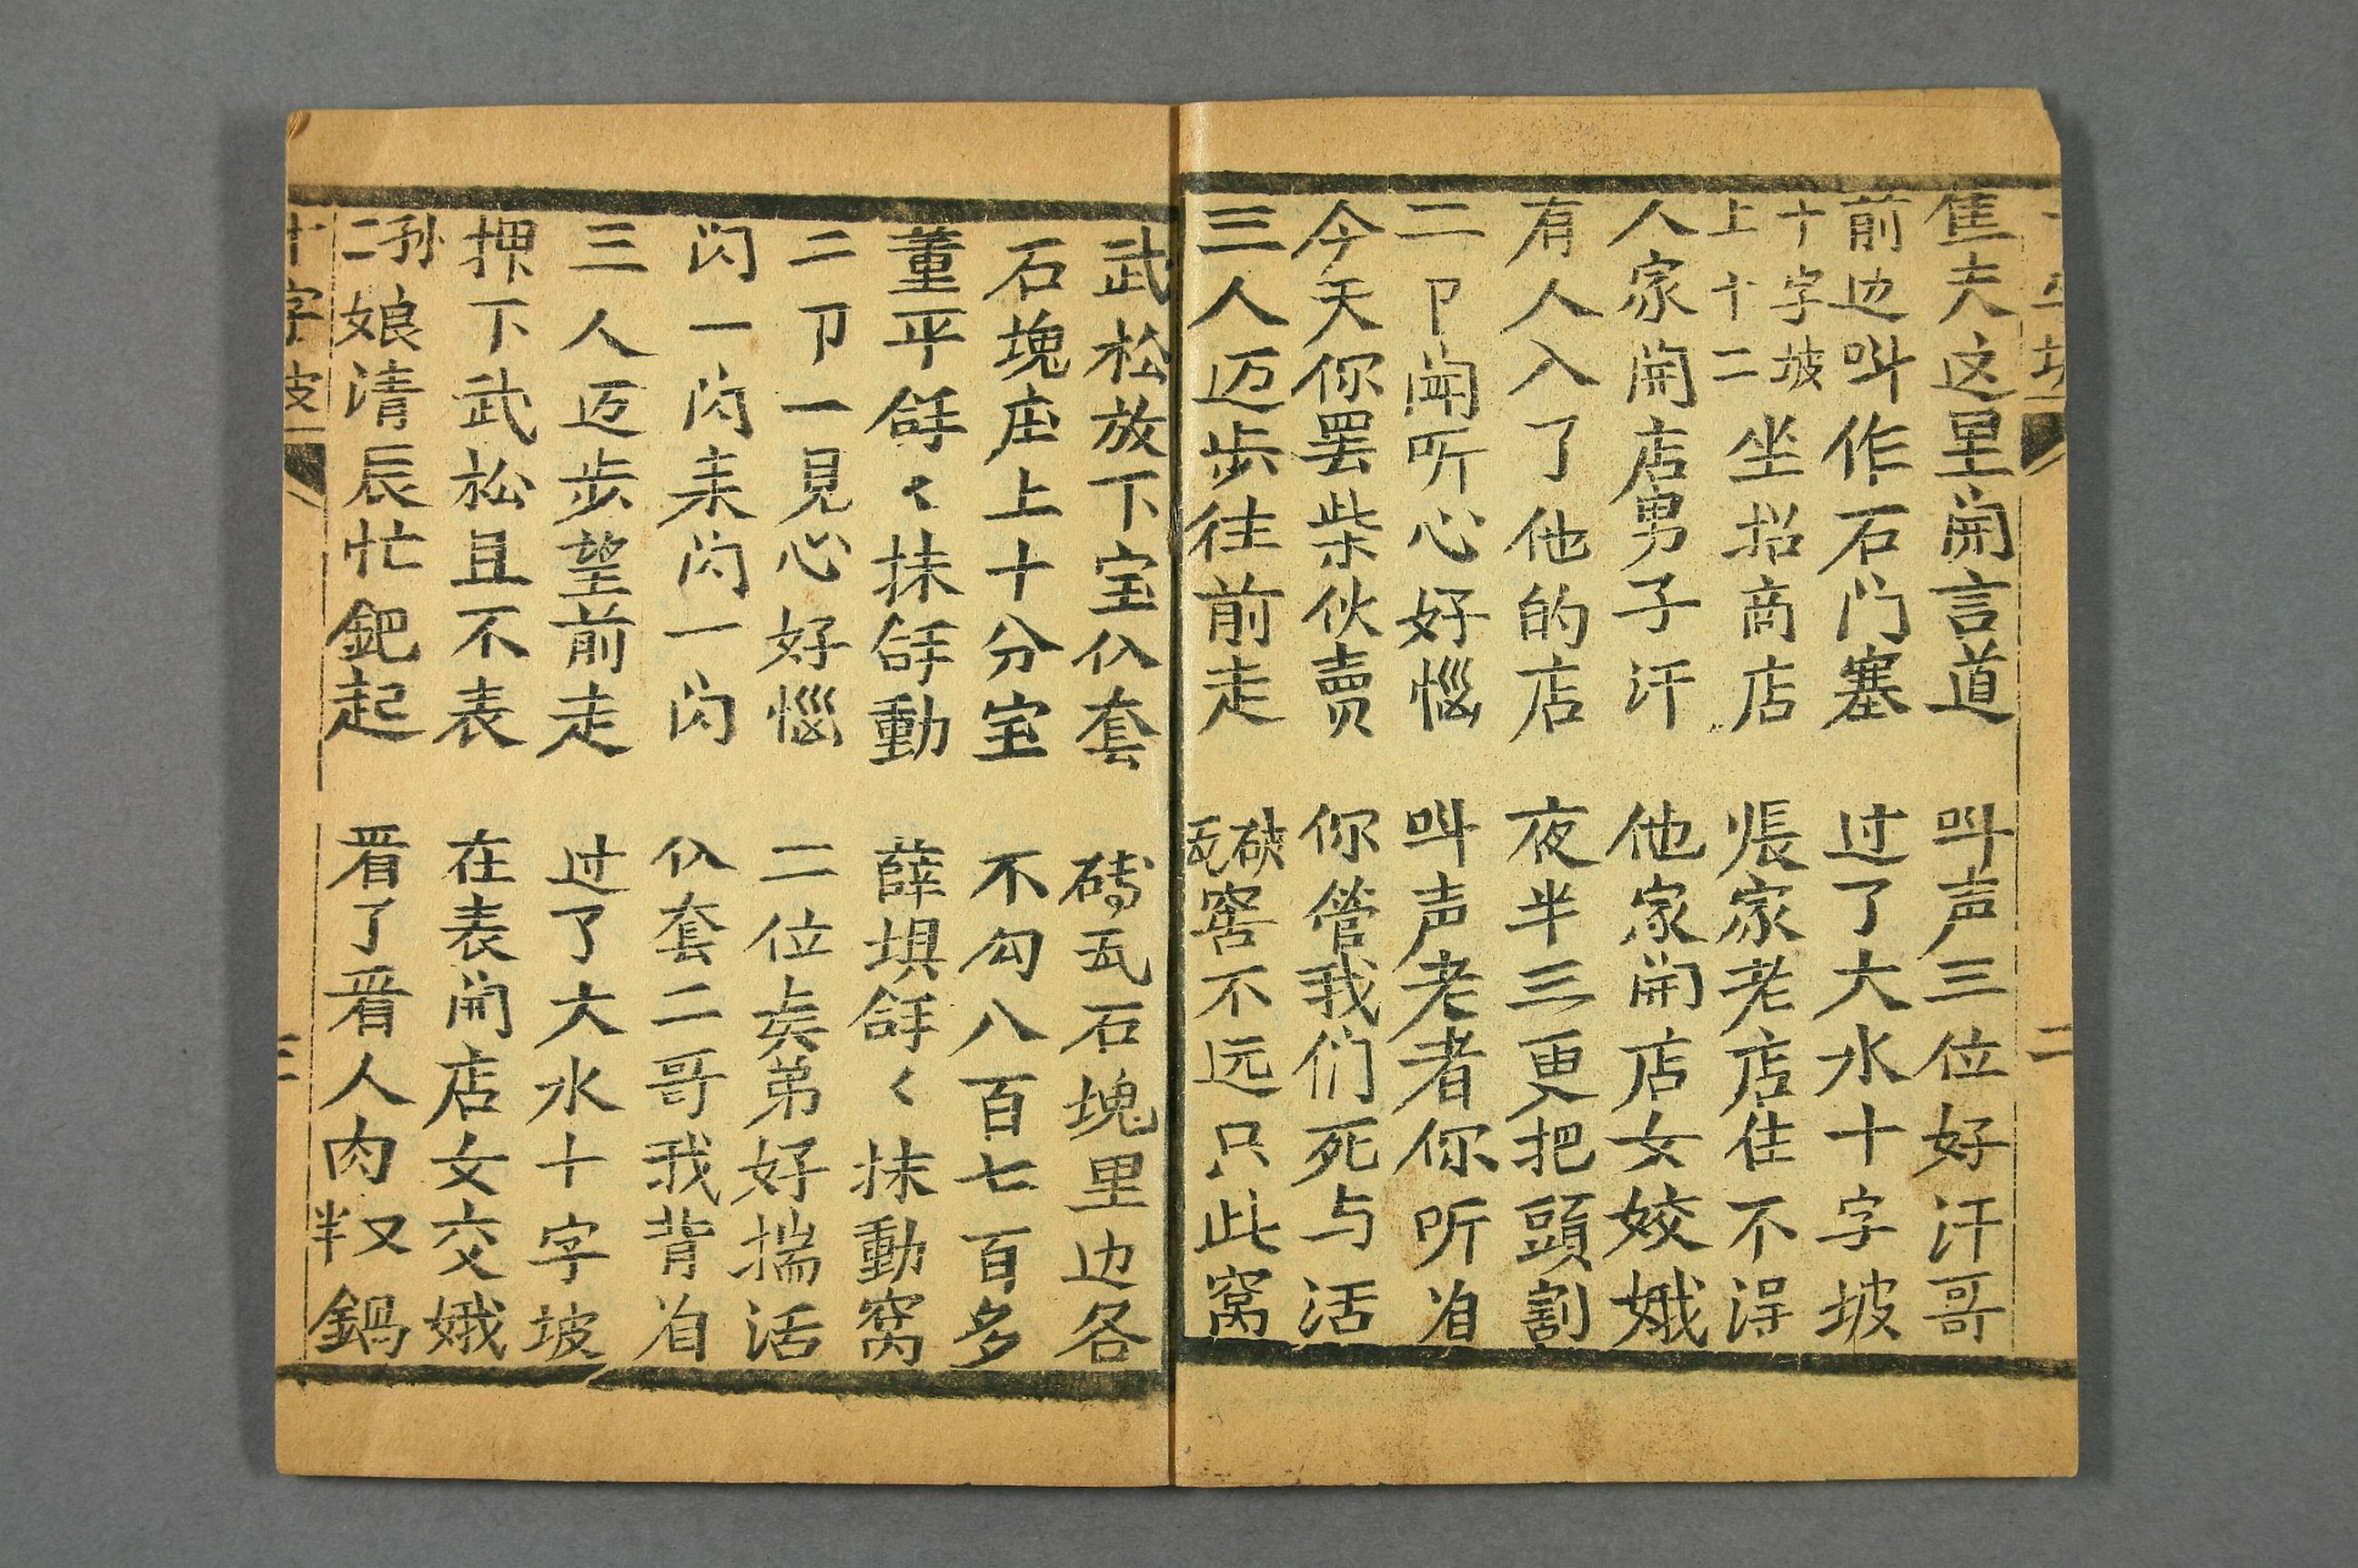 隹夫这里開言道　叫声三位好汗哥
前边叫作石门塞　过了大水十字坡
十字坡上十二坐招商店　張家老店住不淂
人家開店男子汗　他家開店女姣娥
有人入了他的店　夜半三更把頭割
二卩聞听心好惱　叫声老者你听
今天你罢柴伙賣　你管我们死与活
三人迈步往前走　砖瓦窑不远只此窝
武松放下宝仅套　磚瓦石塊里边各
石塊庄上十分宝　不勾八百七百多
董平㸔〻抹㸔動　薛埧㸔〻抹動窝
二卩一見心好惱　二位矣弟好揣活
闪一闪耒闪一闪　仅套二哥我背
三人迈步望前走　过了大水十字坡
押下武松且不表　在表開店女交娥
孙二娘清辰忙鈀起　㸔了㸔人肉半又鍋
十字坡
三
二